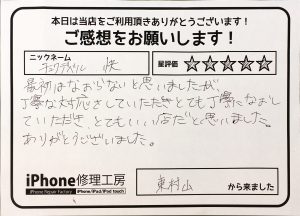 本日は当店をご利用頂きありがとうございます!
ご感想をお願いします!
ニックネーム
様
星評価 ☆☆☆☆☆
最初はなおらないと思いましたが、
丁寧な対応をしていただきとても丁寧になおし
ていただき とてもいい店だと思いました。
ありがとうございました。
iPhone修理工房
iPhone Repair Factory iPhone/iPad/iPod touch
東村山 から来ました